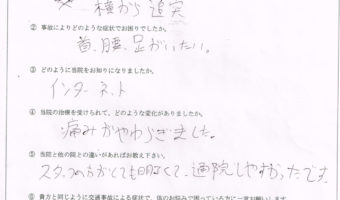 横から追突
② 事故によりどのような症状でお困りでしたか。
首、腰、足がいたい。
③ どのように当院をお知りになりましたか。
インターネット
④ 当院の治療を受けられて、どのような変化がありましたか。
痛みがやわらぎました。
⑤ 当院と他の院との違いがあればお教え下さい。
スタッフの方がとても明るくて、通院しやすかったです。
⑥ 貴方と同じように交通事故による症状で、他のお悩みで困っている方に一言お願いします。